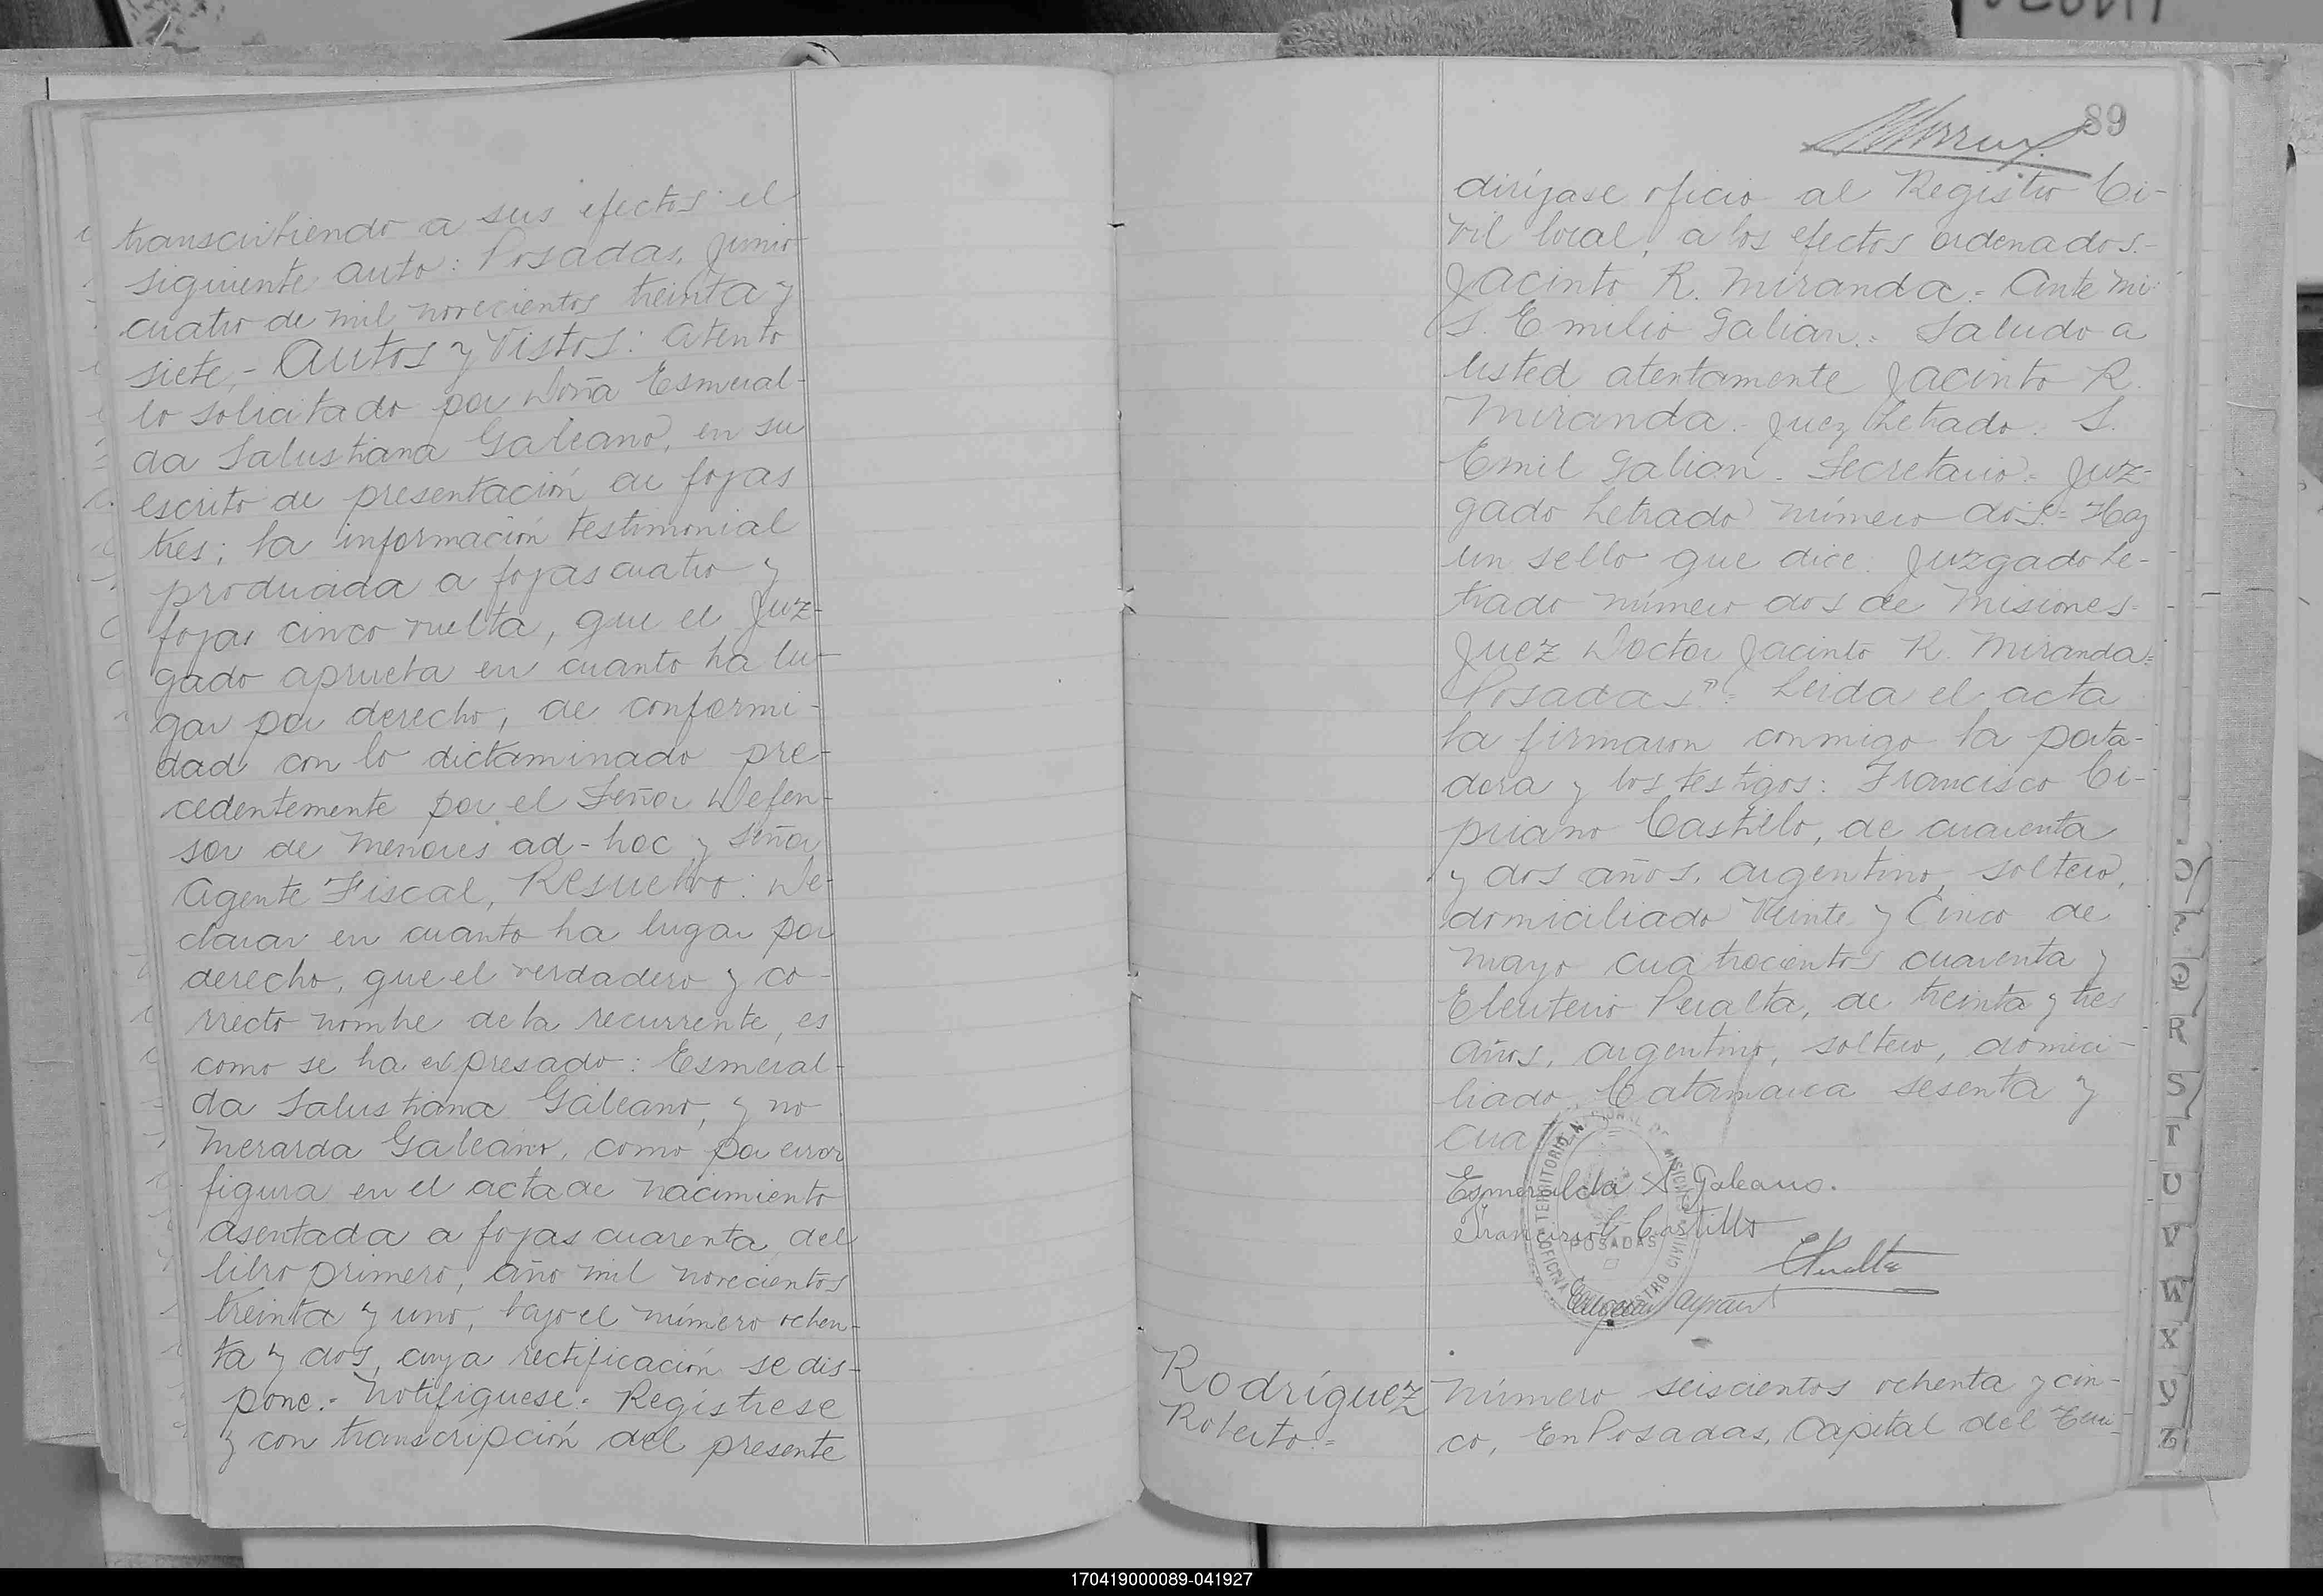 transcribiendo a sus efectos el
siguiente auto: Posadas, Junio
cuatro de mil novecientos treinta y
siete.- Autos y Vistos: atento
lo solicitado por Doña Esmeral-
da Salustiana Galeano, en su
escrito de presentación de fojas
tres; la información testimonial
producida a fojas cuatro y
fojas cinco vuelta, que el Juz-
gado aprueba en cuanto ha lu-
gar por derecho, de conformi-
dad con lo dictaminado pre-
cedentemente por el Señor Defen-
sor de Menores ad-hoc y Señor
Agente Fiscal, Resuelvo: De-
clarar en cuanto ha lugar por
derecho, que el verdadero y co-
rrecto nombre de la recurrente, es
como se ha expresado: Esmeral-
da Salustiana Galeano, y no
Merarda Galeano, como por error
figura en el acta de nacimiento
asentada a fojas cuarenta, del
libro primero, año mil novecientos
treinta y uno, bajo el número ochen-
ta y dos, cuya rectificación se dis-
pone.- Notifíquese.- Regístrese
y con transcripción del presente
89
diríjase oficio al Registro Ci-
vil local, a los efectos ordenados.-
Jacinto R. Miranda.- Ante mi
S. Emilio Galian.- Saludo a
Usted atentamente Jacinto R.
Miranda.- Juez Letrado. S.
Emil Galian. Secretario.- Juz-
gado Letrado número dos.- Hay
un sello que dice: Juzgado Le-
trado número dos de Misiones-
Juez Doctor Jacinto R. Miranda-
Posadas".- Leida el acta
la firmaron conmigo la porta-
dora y los testigos: Francisco Ci-
priano Castillo, de cuarenta
y dos años, argentino, soltero,
domiciliado Veinte y Cinco de
Mayo cuatrocientos cuarenta y
Eleuterio Peralta, de treinta y tres
años, argentino, soltero, domici-
liado Catamarca sesenta y
cua
Esmeralda S Galeano.
Francisco C Castillo
EPeralta
OFICINA TERRITORIO NACIONAL DE MISIONES REGISTRO CIVIL
POSADAS
Rodríguez
Roberto.-
Número seiscientos ochenta y cin-
co, En Posadas, Capital del Terri-
O
P
Q
R
S
T
U
V
W
X
Y
Z
170419000089-041927